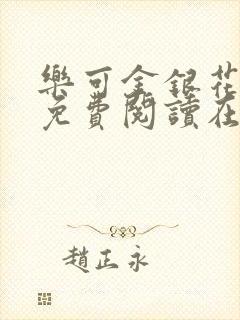 樂可金銀花
免費閱讀在
趙正永